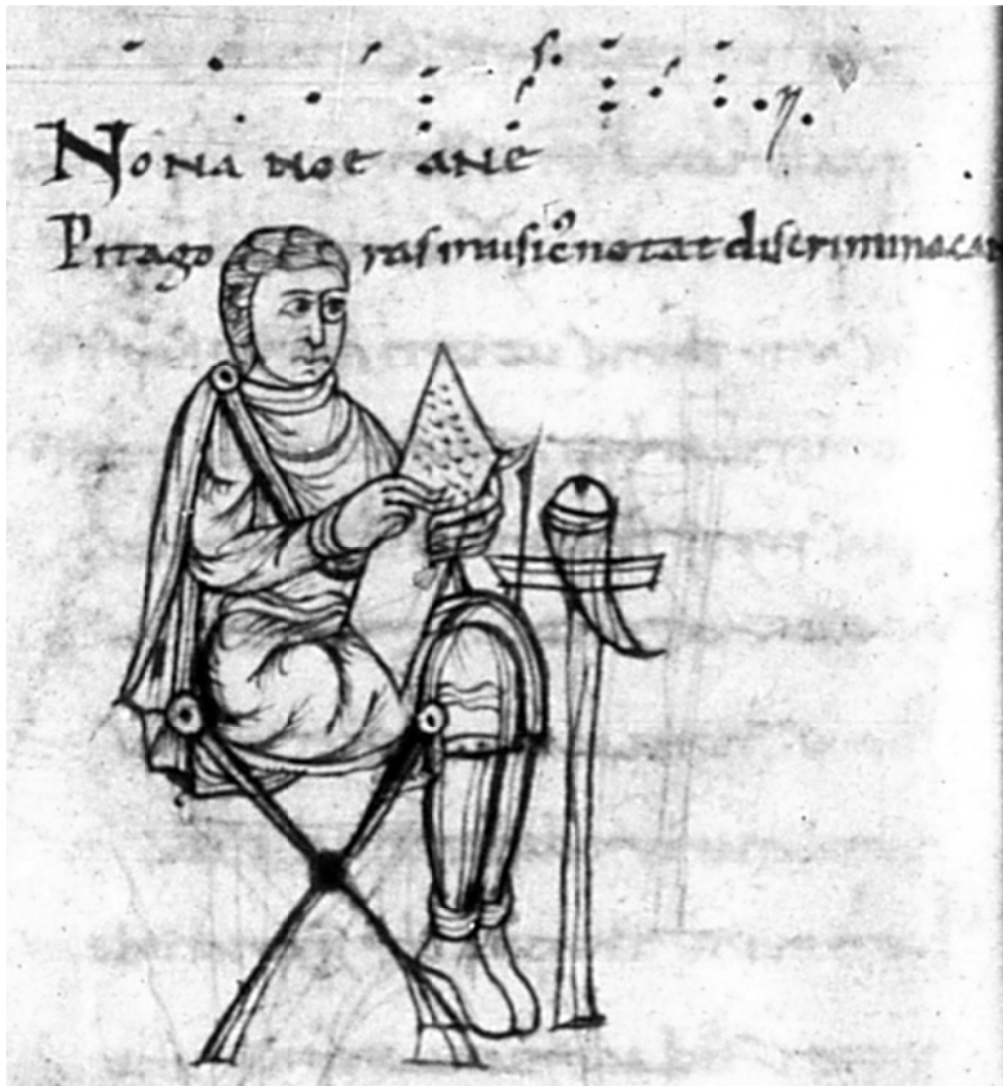 No na noe ane
Pitago ras musicꝰ notat discrimina ca